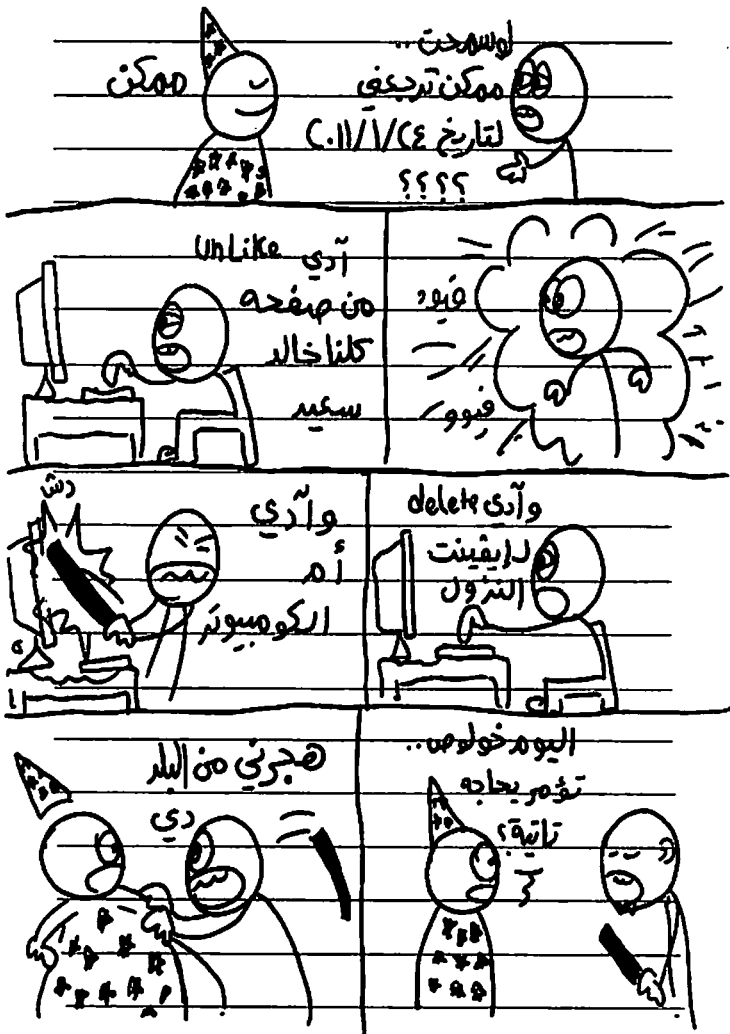 لوسمحت..
ممكن ترجعني
لتاريخ ٢٤/١/٢٠١١
؟؟؟؟
ممكن
فيوو
فيوو
آدي unLike
من صفحه
كلنا خالد
سعيد
وآدي delete
لإيڤينت
النزول
وآدي
أم
الكومبيوتر
دش
اليوم خولوص..
تؤمر بحاجه
تانية؟
هجرني من البلد
دي